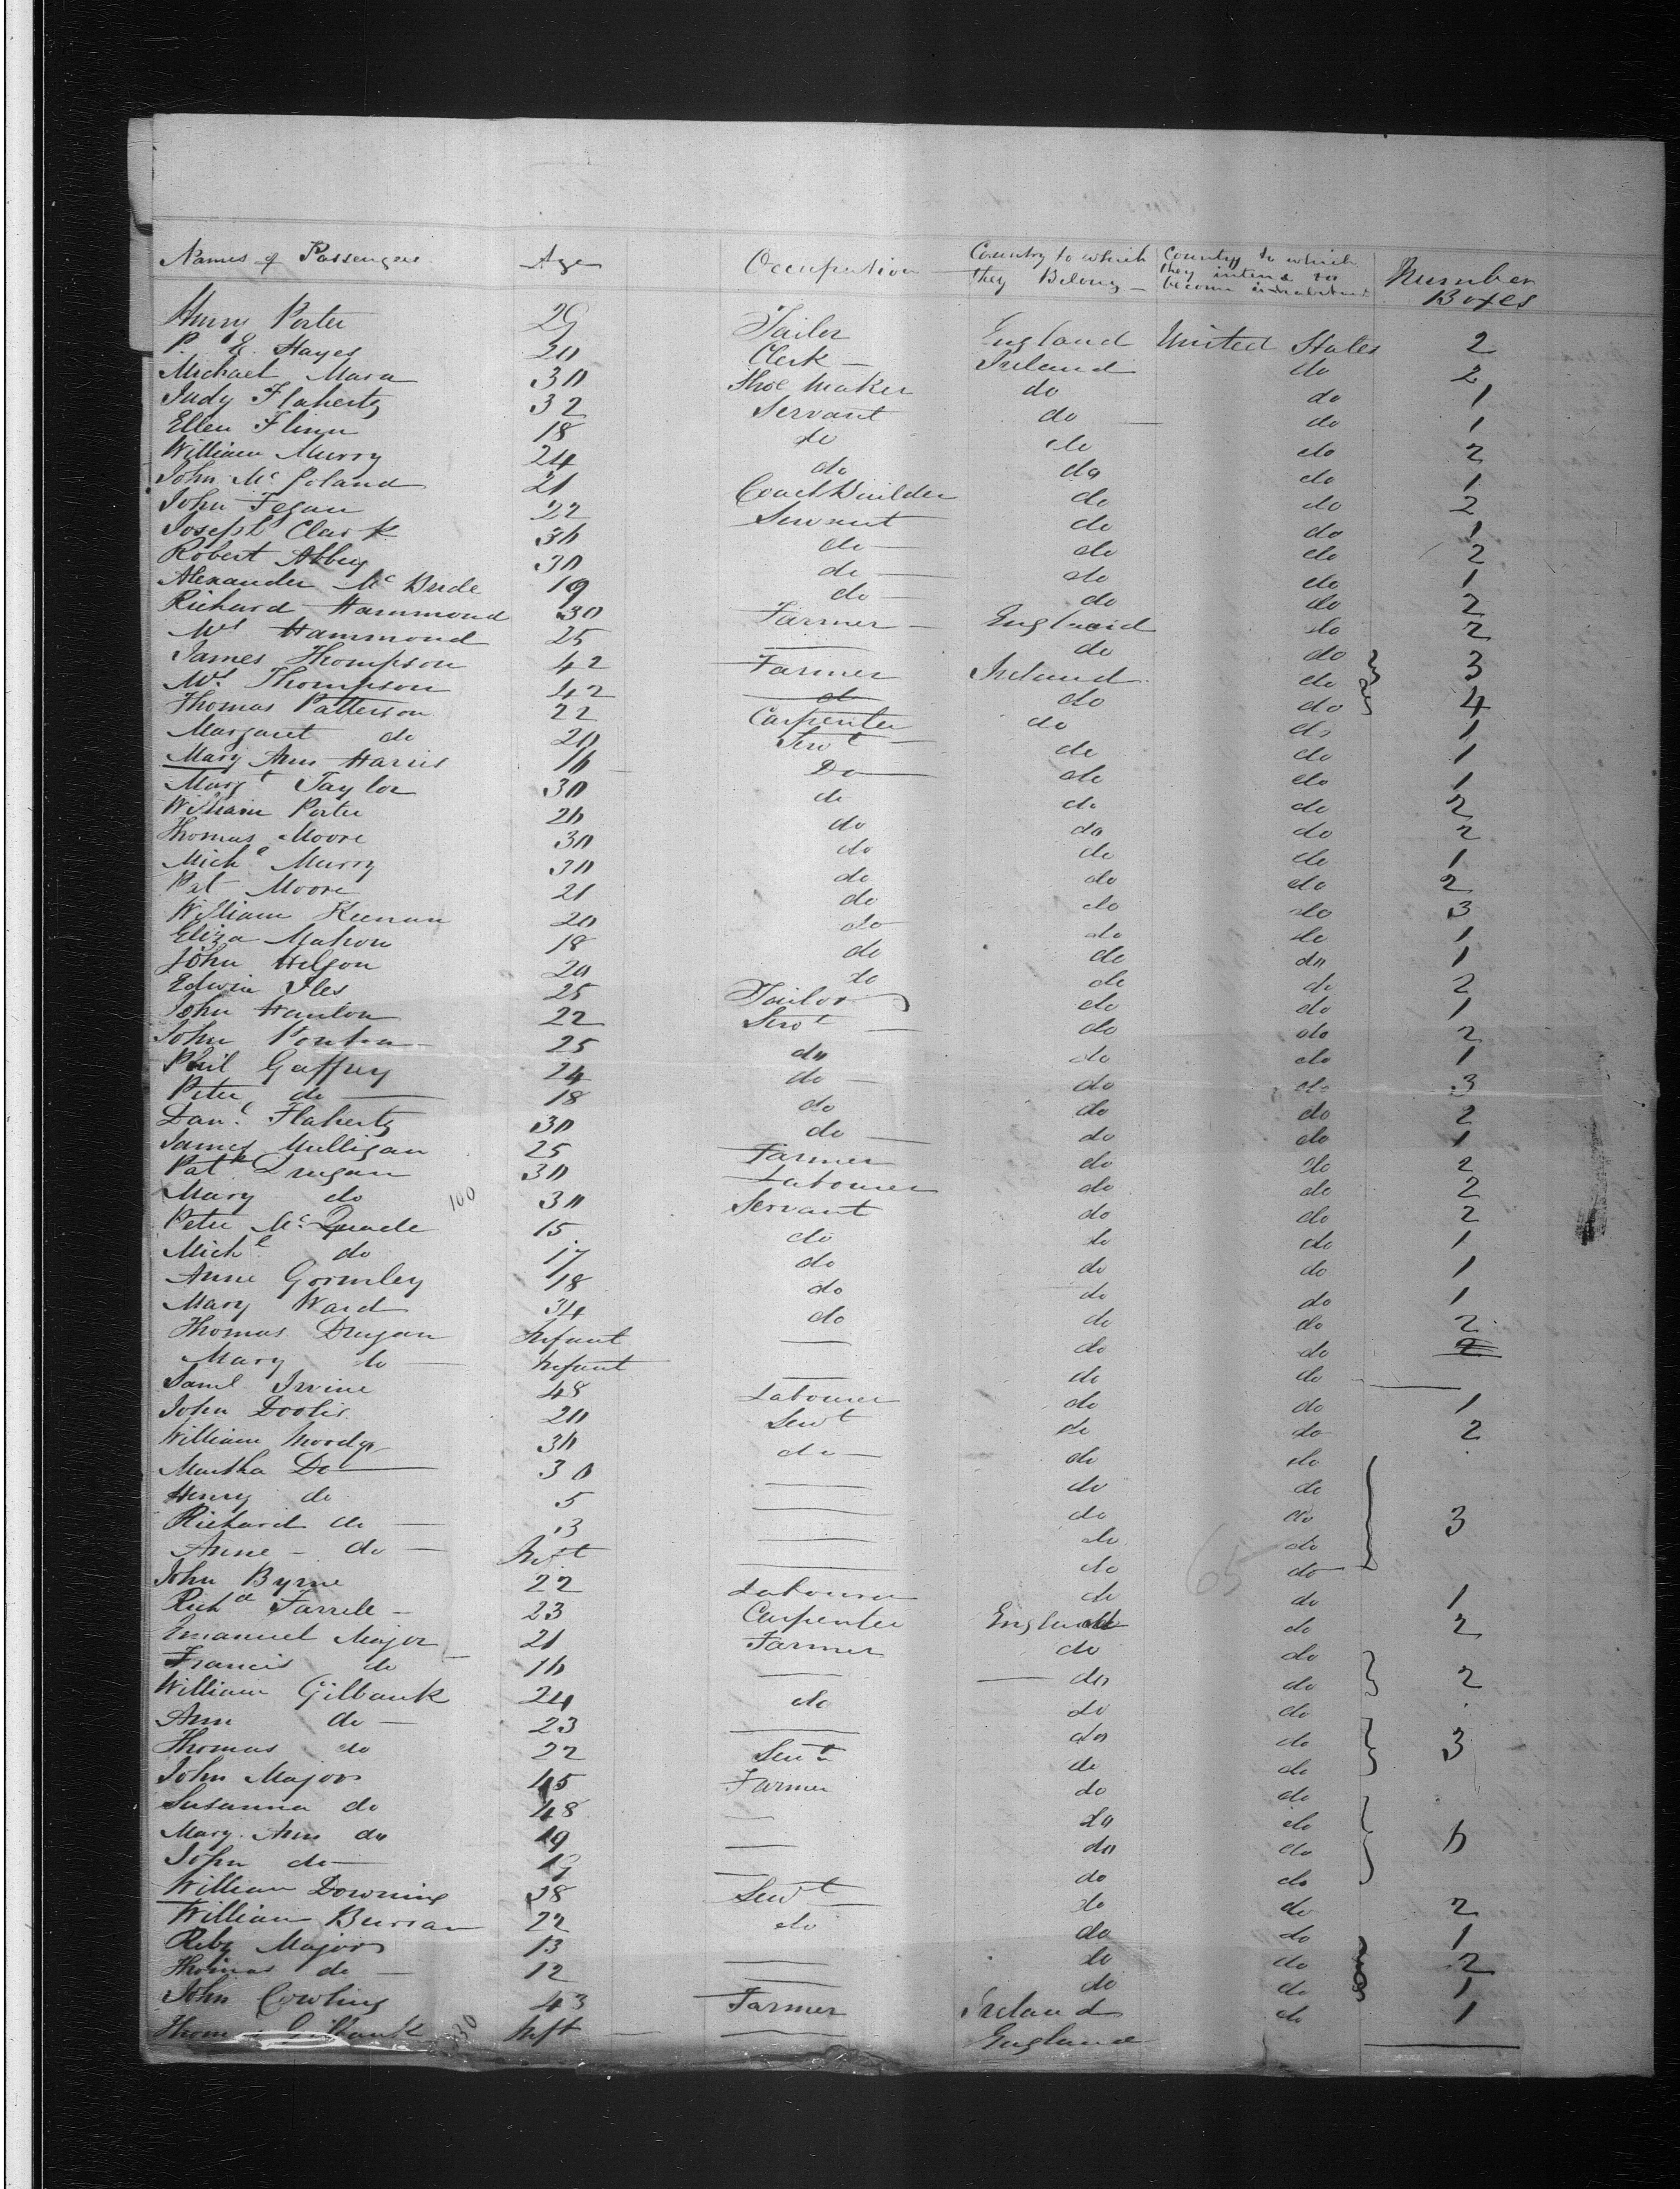 Names of Passengers Age Occupation Country to which they Belong Country to which they intend to become inhabitants Number Boxes
Henry Porter 29 Tailor England United States 2
P. Hayes 20 Clerk Ireland do 2
Michael Mara 30 Shoe Maker do do 1
Judy Flaherty 32 Servant do do 1
Ellen Flinn 18 do do do 2
William Murry 24 do do do 1
John Mc Poland 21 Coach Builder do do 2
John Fegan 22 Servant do do 1
Joseph Clark 36 do do do 2
Robert Abbey 30 do do do 1
Alexander Mc Bride 19 do do do 2
Richard Hammond 30 Farmer England do 2
Mrs Hammond 25 — do do
James Thompson 42 Farmer Ireland do 3
Mrs Thompson 42 do do do 4
Thomas Patterson 22 Carpenter do do 1
Margaret do 20 Servt do do 1
Mary Ann Harris 16 Do do do 1
Margt Taylor 30 do do do 2
William Porter 26 do do do 2
Thomas Moore 30 do do do 1
Michl Murry 30 do do do 2
Pat Moore 21 do do do 3
William Keenan 20 do do do 1
Eliza Mahon 18 do do do 1
John 20 do do do 2
Edwin Iles 25 Tailor do do 1
John Hanlon 22 Servt do do 2
John 25 do do do 1
Phil Gaffney 24 do do do 3
Peter do 18 do do do 2
Danl Flaherty 30 do do do 1
James Mulligan 25 Farmer do do 2
Patk Drugan 30 Labourer do do 2
Mary do 100 30 Servant do do 2
Peter Mc Quade 15 do do do 1
Michl do 17 do do do 1
Anne Gormley 18 do do do 1
Mary Ward 34 do do do 2
Thomas Drugan Infant — do do 2
Mary do Infant — do do —
Saml Irvine 48 Labourer do do 1
John 20 Servt do do 2
William 36 do do do
Martha Do 30 — do do
Henry do 5 — do do
Richard do 3 — do do 3
Anne do Inft — do do
65
John Byrne 22 Labourer do do 1
Richd Farrell 23 Carpenter England do 2
Emanuel Major 21 Farmer do do
Francis do 16 — do do 2
William Gilbank 24 do do do
Ann do 23 — do do 3
Thomas do 22 Servt do do
John Major 45 Farmer do do
Susanna do 48 — do do
Mary Ann do 19 — do do 6
John do — do do
William Downing 38 Servt do do 2
William 22 do do do 1
Major 13 — do do 2
Thomas do 12 — do do 1
John Cowling 43 Farmer Ireland do 1
Gilbank 130 Inft — England